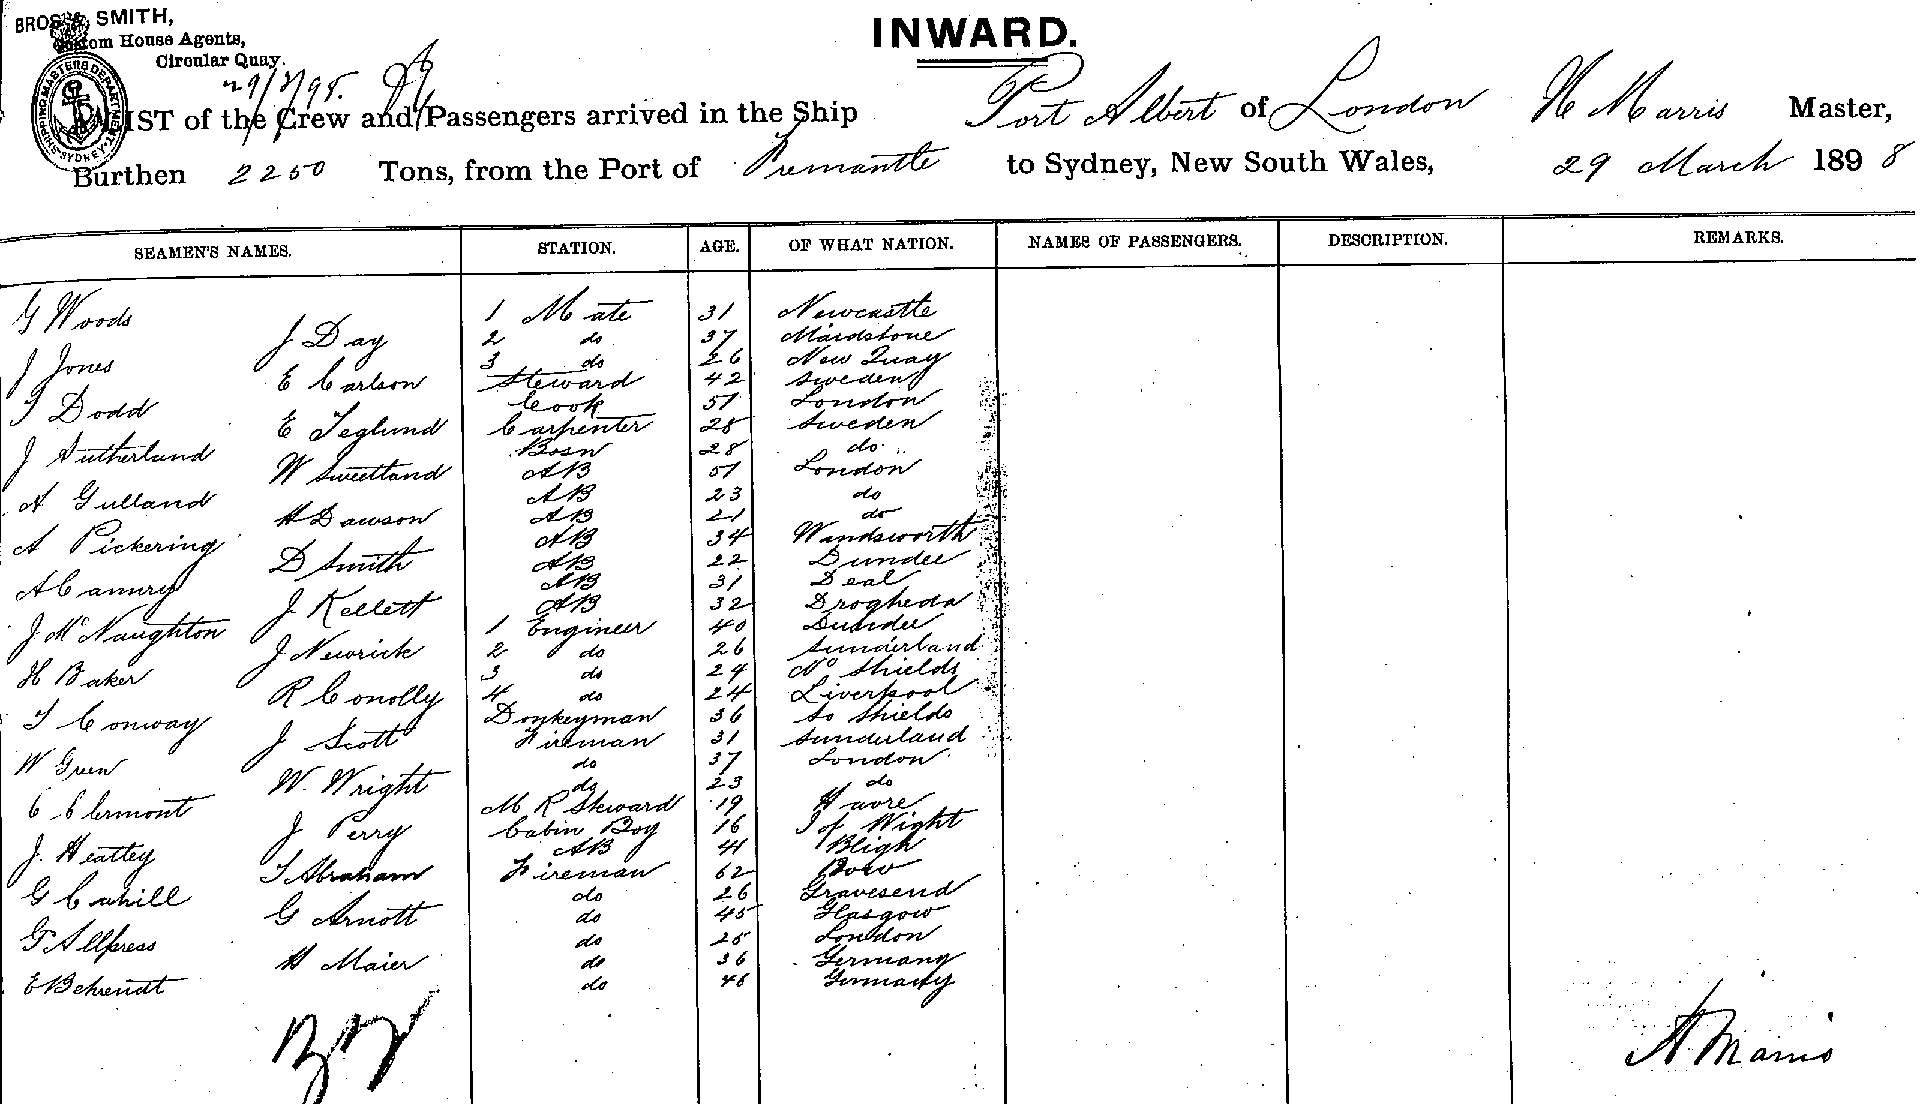 BROS & SMITH,
Custom House Agents,
Circular Quay.
INWARD.
29/3/98.
SHIPPING MASTERS DEPARTMENT SYDNEY
LIST of the Crew and Passengers arrived in the Ship Port Albert of London H Marris Master,
Burthen 2250 Tons, from the Port of Fremantle to Sydney, New South Wales, 29 March 1898
SEAMEN'S NAMES. STATION. AGE. OF WHAT NATION. NAMES OF PASSENGERS. DESCRIPTION. REMARKS.
G Woods 1 Mate 31 Newcastle
J Day 2 do 37 Maidstone
J Jones 3 do 26 New Quay
E Carlson Steward 42 Sweden
T Dodd Cook 51 London
E Teglund Carpenter 28 Sweden
J Sutherland Bosn 28 do
W Sweetland AB 51 London
A Gulland AB 23 do
H Dawson AB 21 do
A Pickering AB 34 Wandsworth
D Smith AB 22 Dundee
A Camury AB 31 Deal
J Kellett AB 32 Drogheda
J McNaughton 1 Engineer 40 Dundee
J Newrick 2 do 26 Sunderland
H Baker 3 do 24 No Shields
R Conolly 4 do 24 Liverpool
T Conway Donkeyman 36 So Shields
J Scott Fireman 31 Sunderland
W Green do 37 London
W. Wright do 23 do
C Clermont M R Steward 19 Havre
J Perry Cabin Boy 16 I of Wight
J. Heatley AB 41 Bligh
T Abraham Fireman 62 Bow
G Cahill do 26 Gravesend
G Arnott do 45 Glasgow
G Allpress do 25 London
H Maier do 36 Germany
E Behrendt do 46 Germany
H Marris